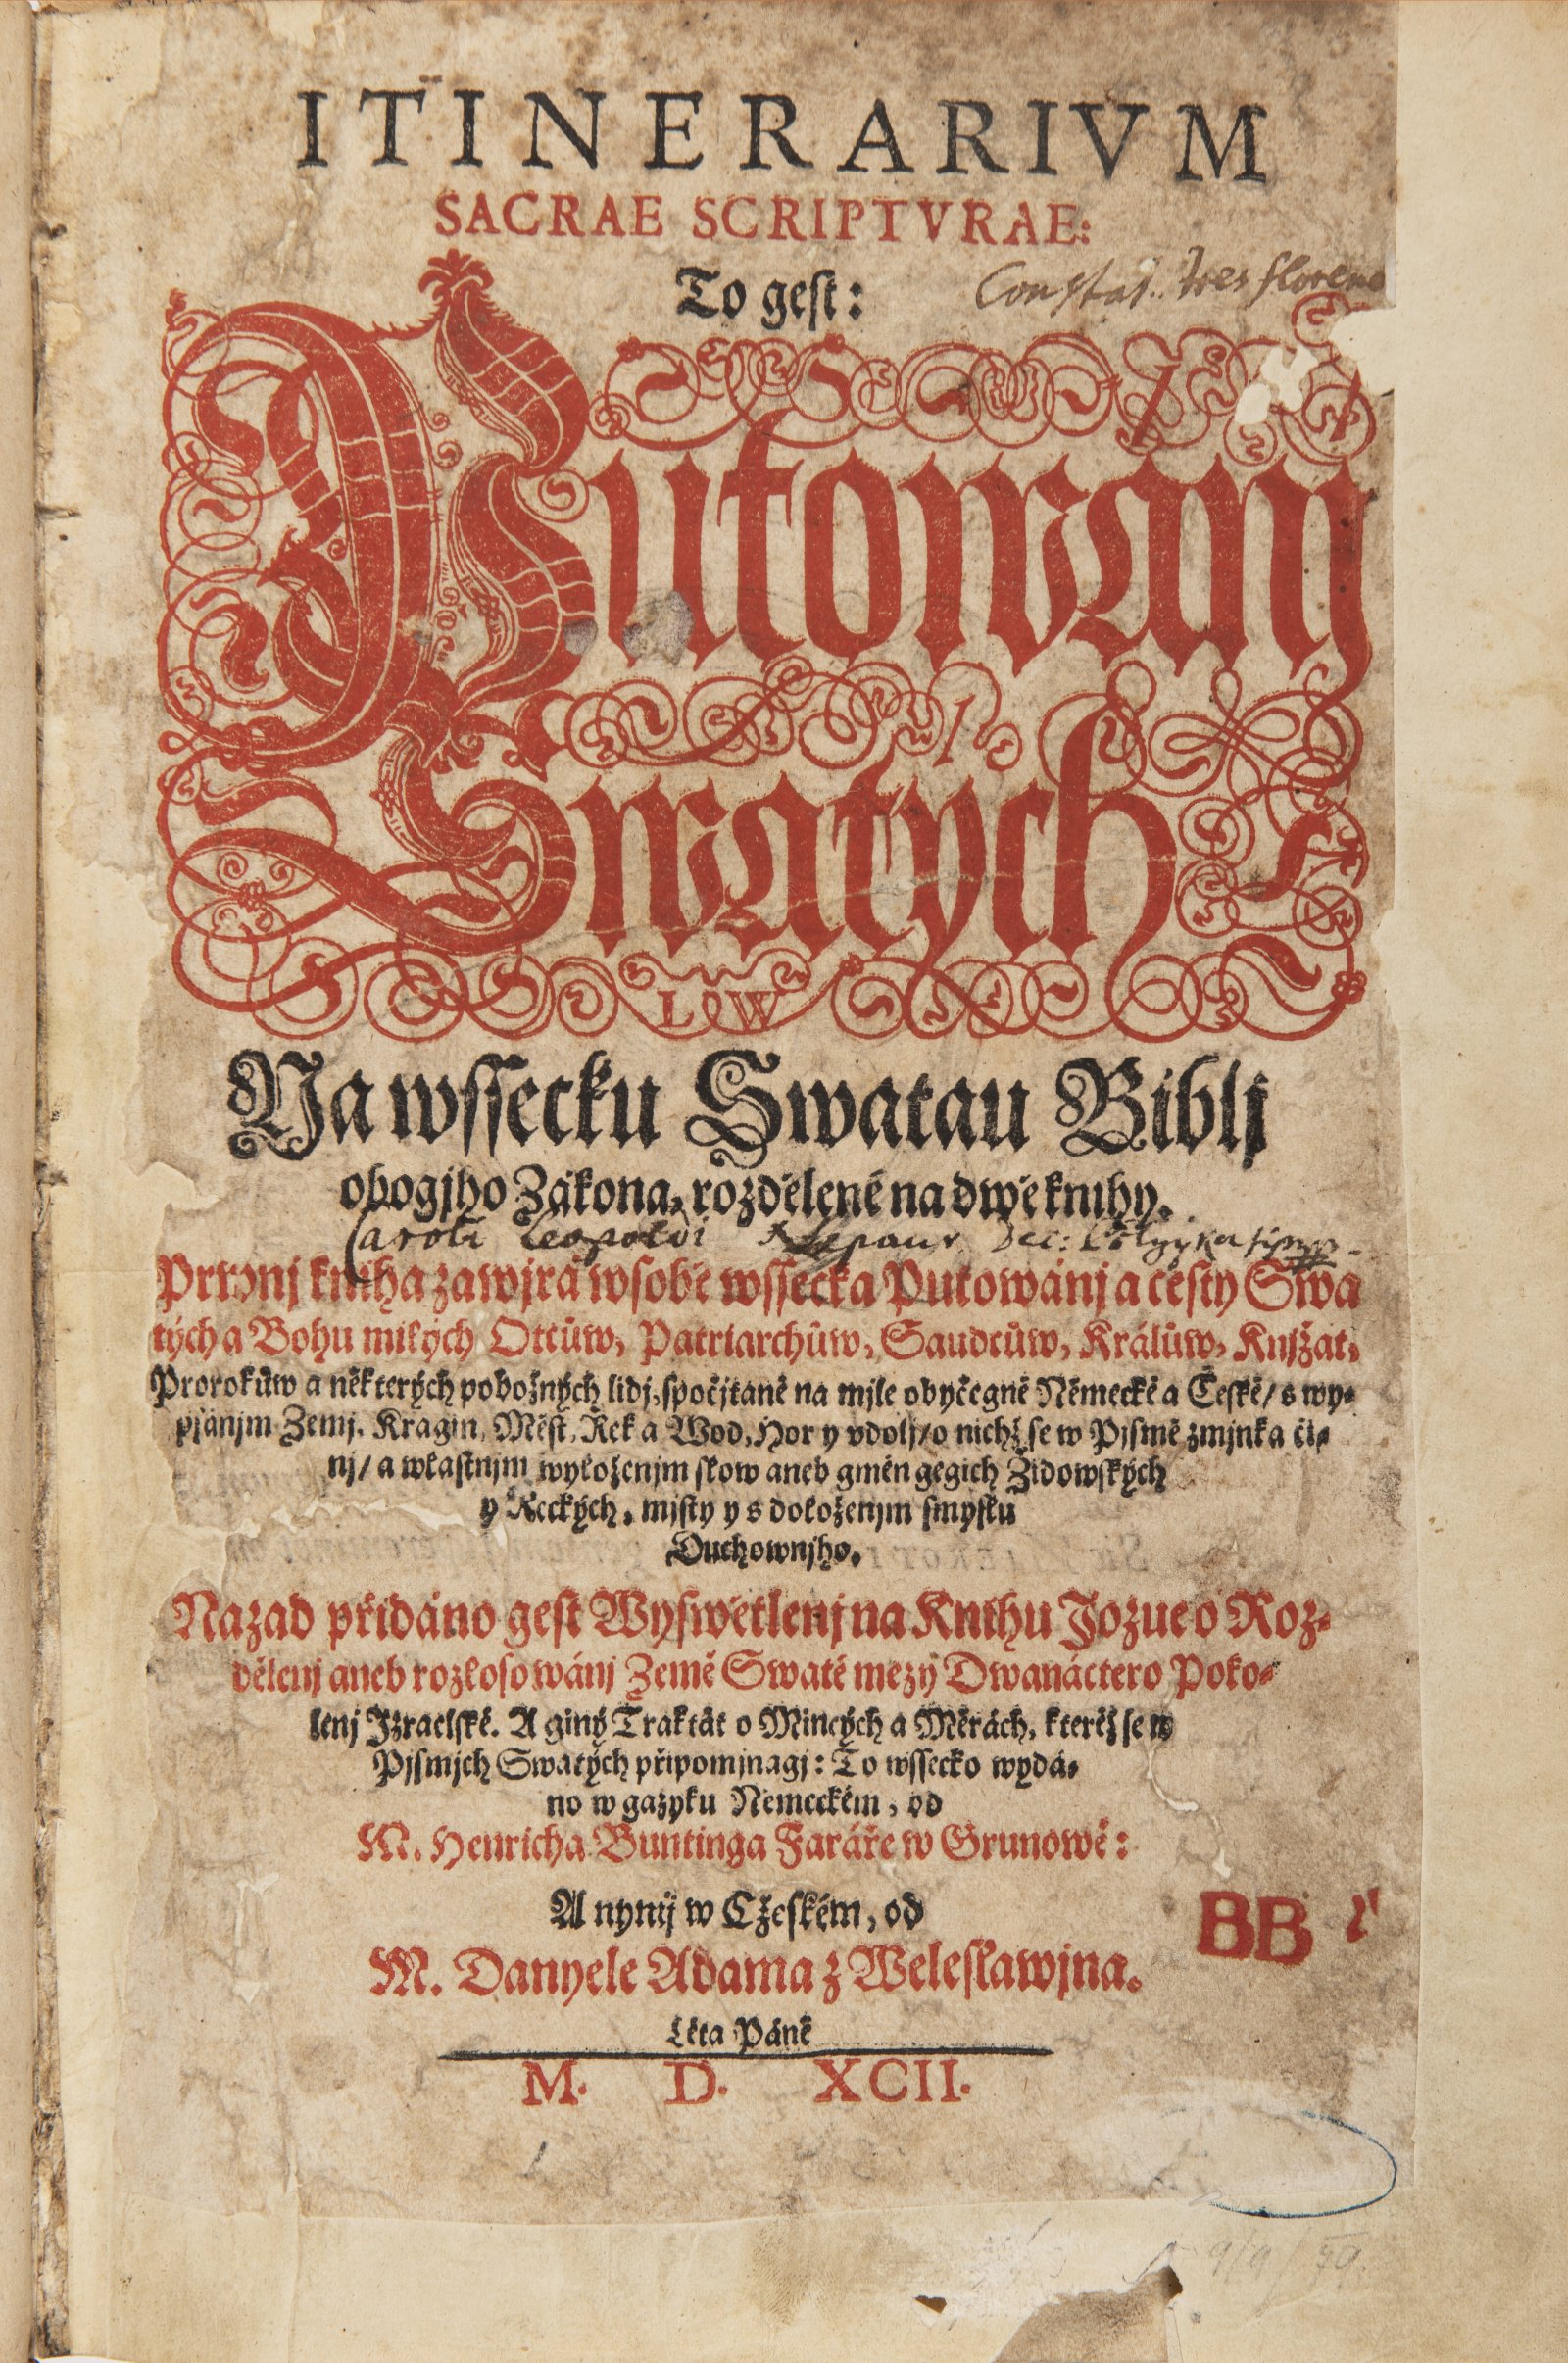 ITINERARIVM
SACRAE SCRIPTVRAE:
To geſt:
Putowánj
Swatých
LW
Na wſſecku Swatau Biblj
obogjho Zákona, rozdělené na dwě knihy.
Caroli Leopoldi
Prwnj kniha zawjrá w ſobě wſſecka Putowánj a ceſty Swa
tých a Bohu milých Otcůw, Patriarchůw, Saudcůw, Králůw, Knjžat,
Prorokůw a některých pobožných lidj, ſpočjtané na mjle obyčegné Německé a České/ s wy-
pſánjm Zemj, Kragin, Měſt, Řek a Wod, Hor y vdolj/ o nichž ſe w Pjſmě zmjnka či-
nj/ a wlaſtnjm wyloženjm ſlow aneb gmén gegich Židowſkých
y Řeckých, mjſty y s doloženjm ſmyſlu
Duchownjho.
Nazad přidáno geſt Wyſwětlenj na Knihu Jozue o Roz-
dělenj aneb rozloſowánj Země Swaté mezy Dwanáctero Poko-
lenj Jzraelſké. A giný Traktát o Mincých a Měrách, kteréž ſe w
Pjſmjch Swatých připomjnagj: To wſſecko wydá-
no w gazyku Německém, od
M. Henricha Buntinga Faráře w Grunowě:
A nynij w Cžeſkém, od
M. Danyele Adama z Weleſlawjna.
BB
Léta Páně
M. D. XCII.